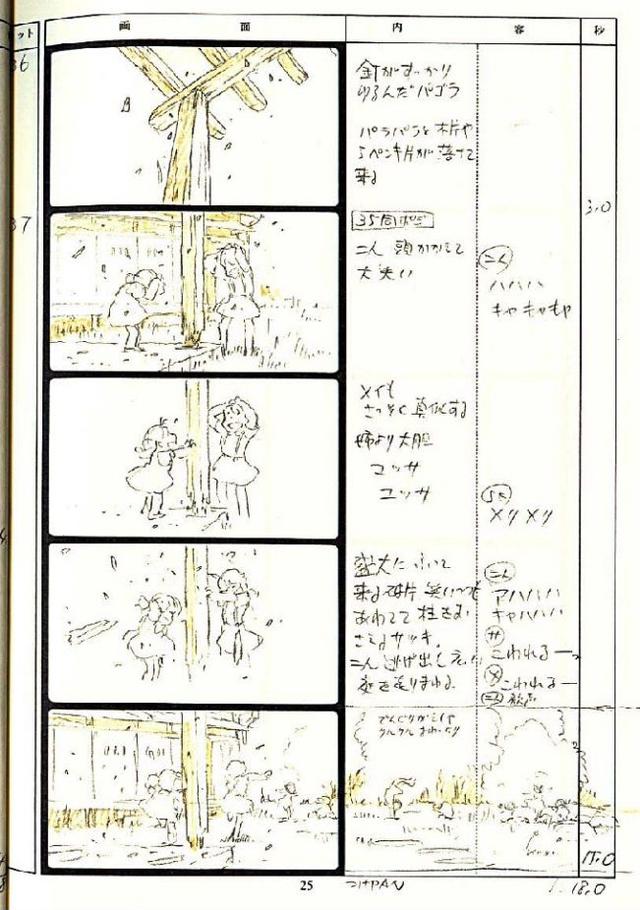 ット 画面 内容 秒
36
釘がすっかり
ゆるんだパゴラ
パラパラと木片や
ペンキ片が落ちて
来る
3.0
37
二人 頭かかえて
大笑い
二人
ハハハ
キャキャキャ
メイも
さっそく真似する
姉より大胆
ユッサ
ユッサ
メリメリ
盛大に
来る破片 笑いつつ
あわてて柱を
さえるサッキ、
二人逃げ出し
庭を走りまわる
二人
アハハハ
キャハハハ
サ
こわれるー
メ
こわれるー
二人 歓声
でんぐりがえしや
クルクルまわったり
15.0
25
つけPAN
18.0